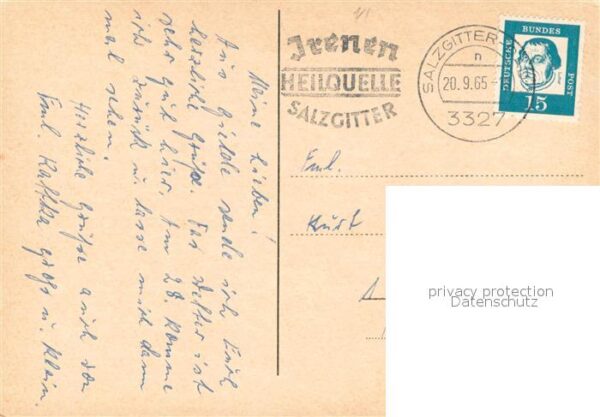 Meine Lieben!
Aus Gielde sende ich Euch
herzliche Grüße. Das Wetter ist
sehr gut hier. Am 28. komme
ich zurück u. lasse mich dann
mal sehen.
Herzliche Grüße auch von
Faml. groß u. klein.
Irenen
HEILQUELLE
SALZGITTER
SALZGITTER-
n
20.9.65-
3327
DEUTSCHE
BUNDES
POST
15
Faml.
Kurt
privacy protection
Datenschutz